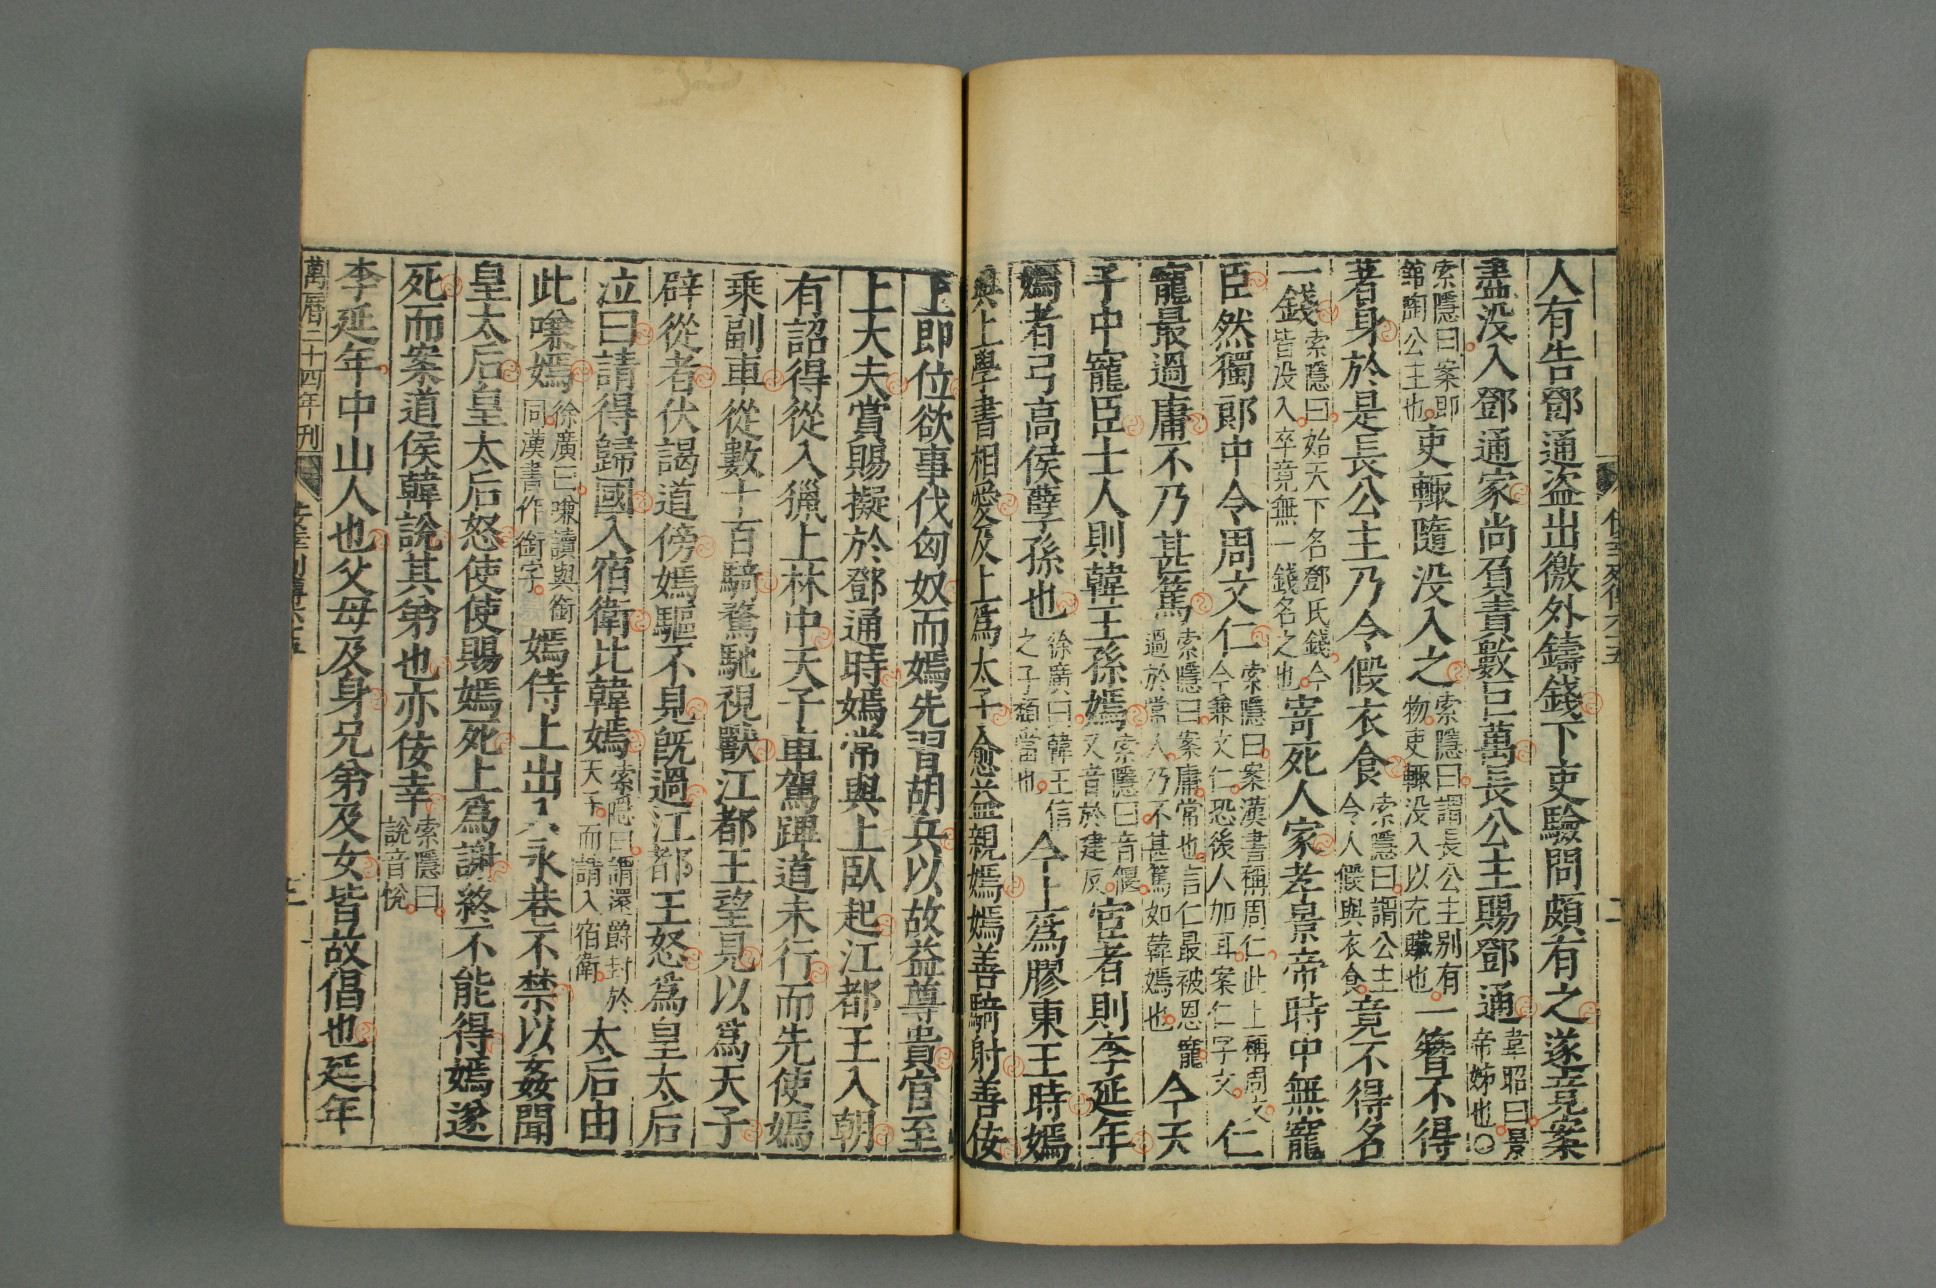 人有告鄧通盜出徼外鑄錢下吏驗問頗有之遂竟案
盡没入鄧通家尚負責數巨萬長公主賜鄧通韋昭曰景帝姊也○
索隱曰案即館陶公主也吏輒隨没入之索隱曰謂長公主别有物吏輒没入以充贓也一簪不得
著身於是長公主乃令假衣食索隱曰謂公主令人假與衣食竟不得名
一錢索隱曰始天下名鄧氏錢今皆没入卒竟無一錢名之也寄死人家孝景帝時中無寵
臣然獨郎中令周文仁索隱曰案漢書稱周仁此上稱周文今兼文仁恐後人加耳案仁字文仁
寵最過庸不乃甚篤索隱曰案庸常也言仁最被恩寵過於常人乃不甚篤如韓嫣也今天
子中寵臣士人則韓王孫嫣索隱曰音偃又音於建反宦者則李延年
嫣者弓高侯孽孫也徐廣曰韓王信之子頽當也今上爲膠東王時嫣
與上學書相愛及上爲太子愈益親嫣嫣善騎射善佞
上即位欲事伐匈奴而嫣先習胡兵以故益尊貴官至
上大夫賞賜擬於鄧通時嫣常與上臥起江都王入朝
有詔得從入獵上林中天子車駕蹕道未行而先使嫣
乘副車從數十百騎騖馳視獸江都王望見以爲天子
辟從者伏謁道傍嫣驅不見旣過江都王怒爲皇太后
泣曰請得歸國入宿衛比韓嫣索隱曰謂還爵封於天子而請入宿衛太后由
此嗛嫣徐廣曰嗛讀與銜同漢書作銜字嫣侍上出入永巷不禁以姦聞
皇太后皇太后怒使使賜嫣死上爲謝終不能得嫣遂
死而案道侯韓說其弟也亦佞幸索隱曰說音悅
李延年中山人也父母及身兄弟及女皆故倡也延年
萬曆二十四年刊